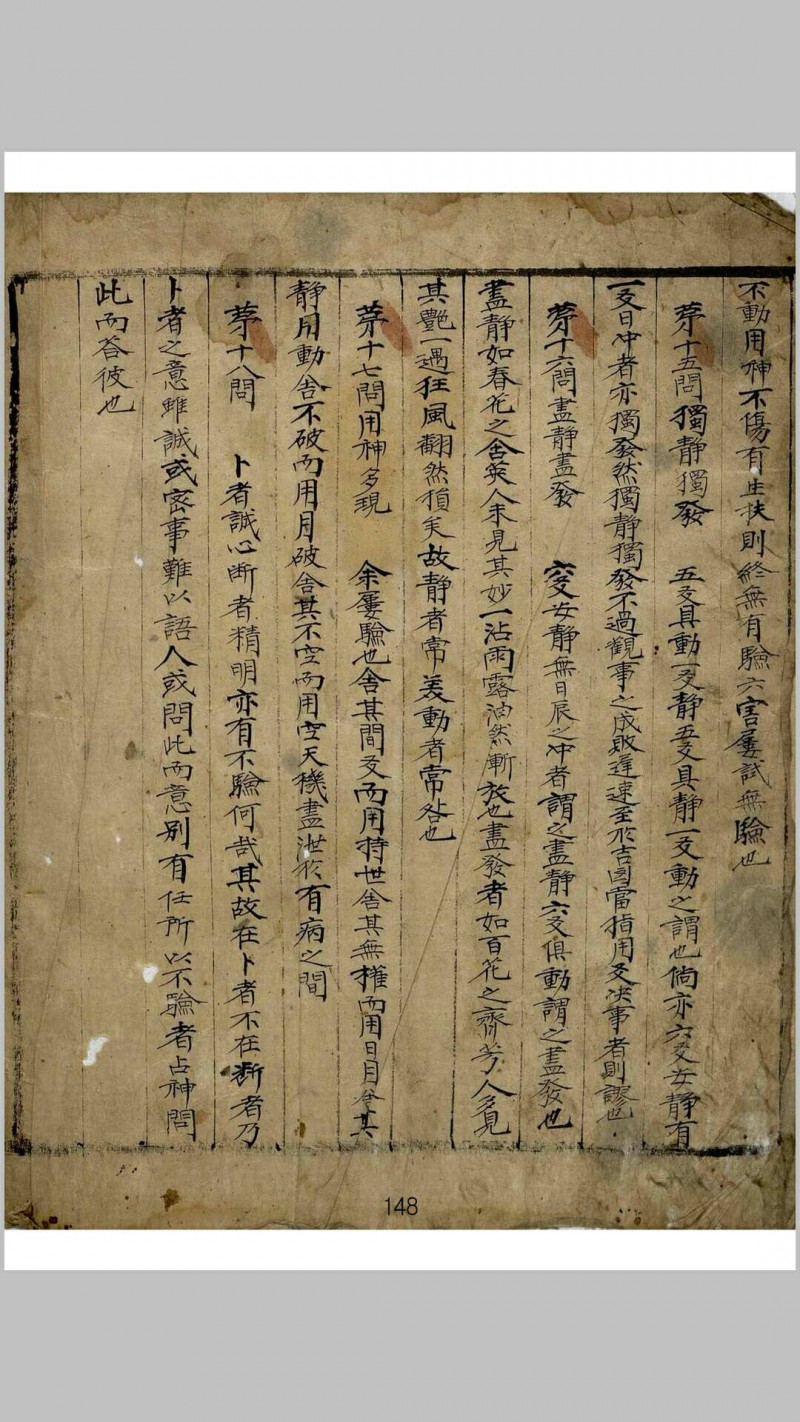 不動用神不傷有生扶則終無有驗六害屢試無驗也
第十五問獨靜獨發　五爻具動一爻靜五爻具靜一爻動之謂也倘亦六爻安靜有
一爻日冲者亦獨發然獨靜獨發不過觀事之成敗遲速至於吉凶當指用爻決事者則謬也
第十六問盡靜盡發　六爻安靜無日辰之冲者謂之盡靜六爻俱動謂之盡發也
盡靜如春花之含英人未見其妙一沾雨露油然漸放也盡發者如百花之齊芳人多見
其艷一遇狂風翻然損矣故靜者常美動者常咎也
第十七問用神多現　余屢驗也舍其間爻而用持世舍其無權而用日月舍其
靜用動舍不破而用月破舍其不空而用空天機盡泄於有病之間
第十八問　卜者誠心断者精明亦有不驗何哉其故在卜者不在断者乃
卜者之意雖誠或密事難以語人或問此而意别有任所以不驗者占神問
此而答彼也
148